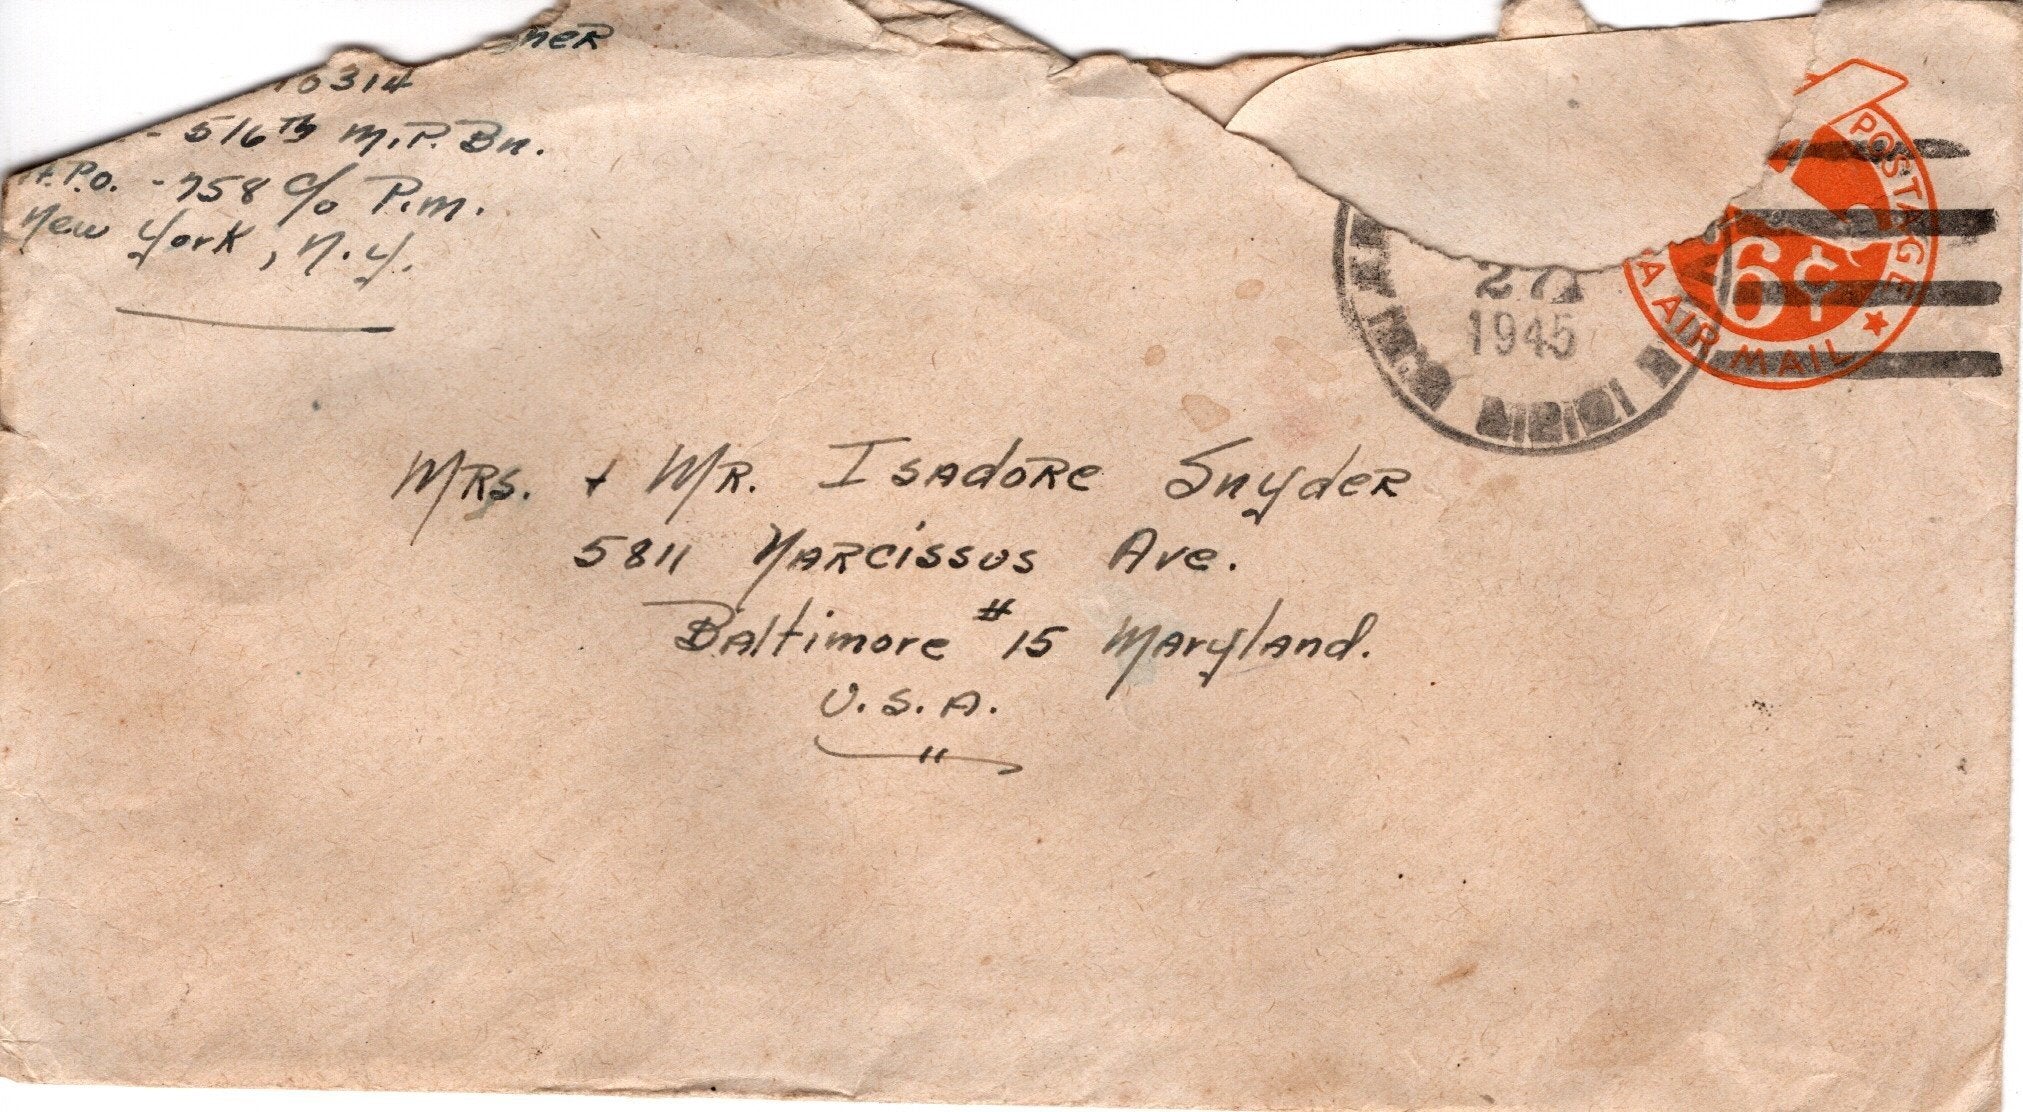 10314
- 516th M.P. Bn.
A.P.O. - 758 c/o P.M.
New York, N.Y.
POSTAGE
6¢
A AIR MAIL
1945
Mrs. + Mr. Isadore Snyder
5811 Narcissus Ave.
Baltimore # 15 Maryland.
U.S.A.
"